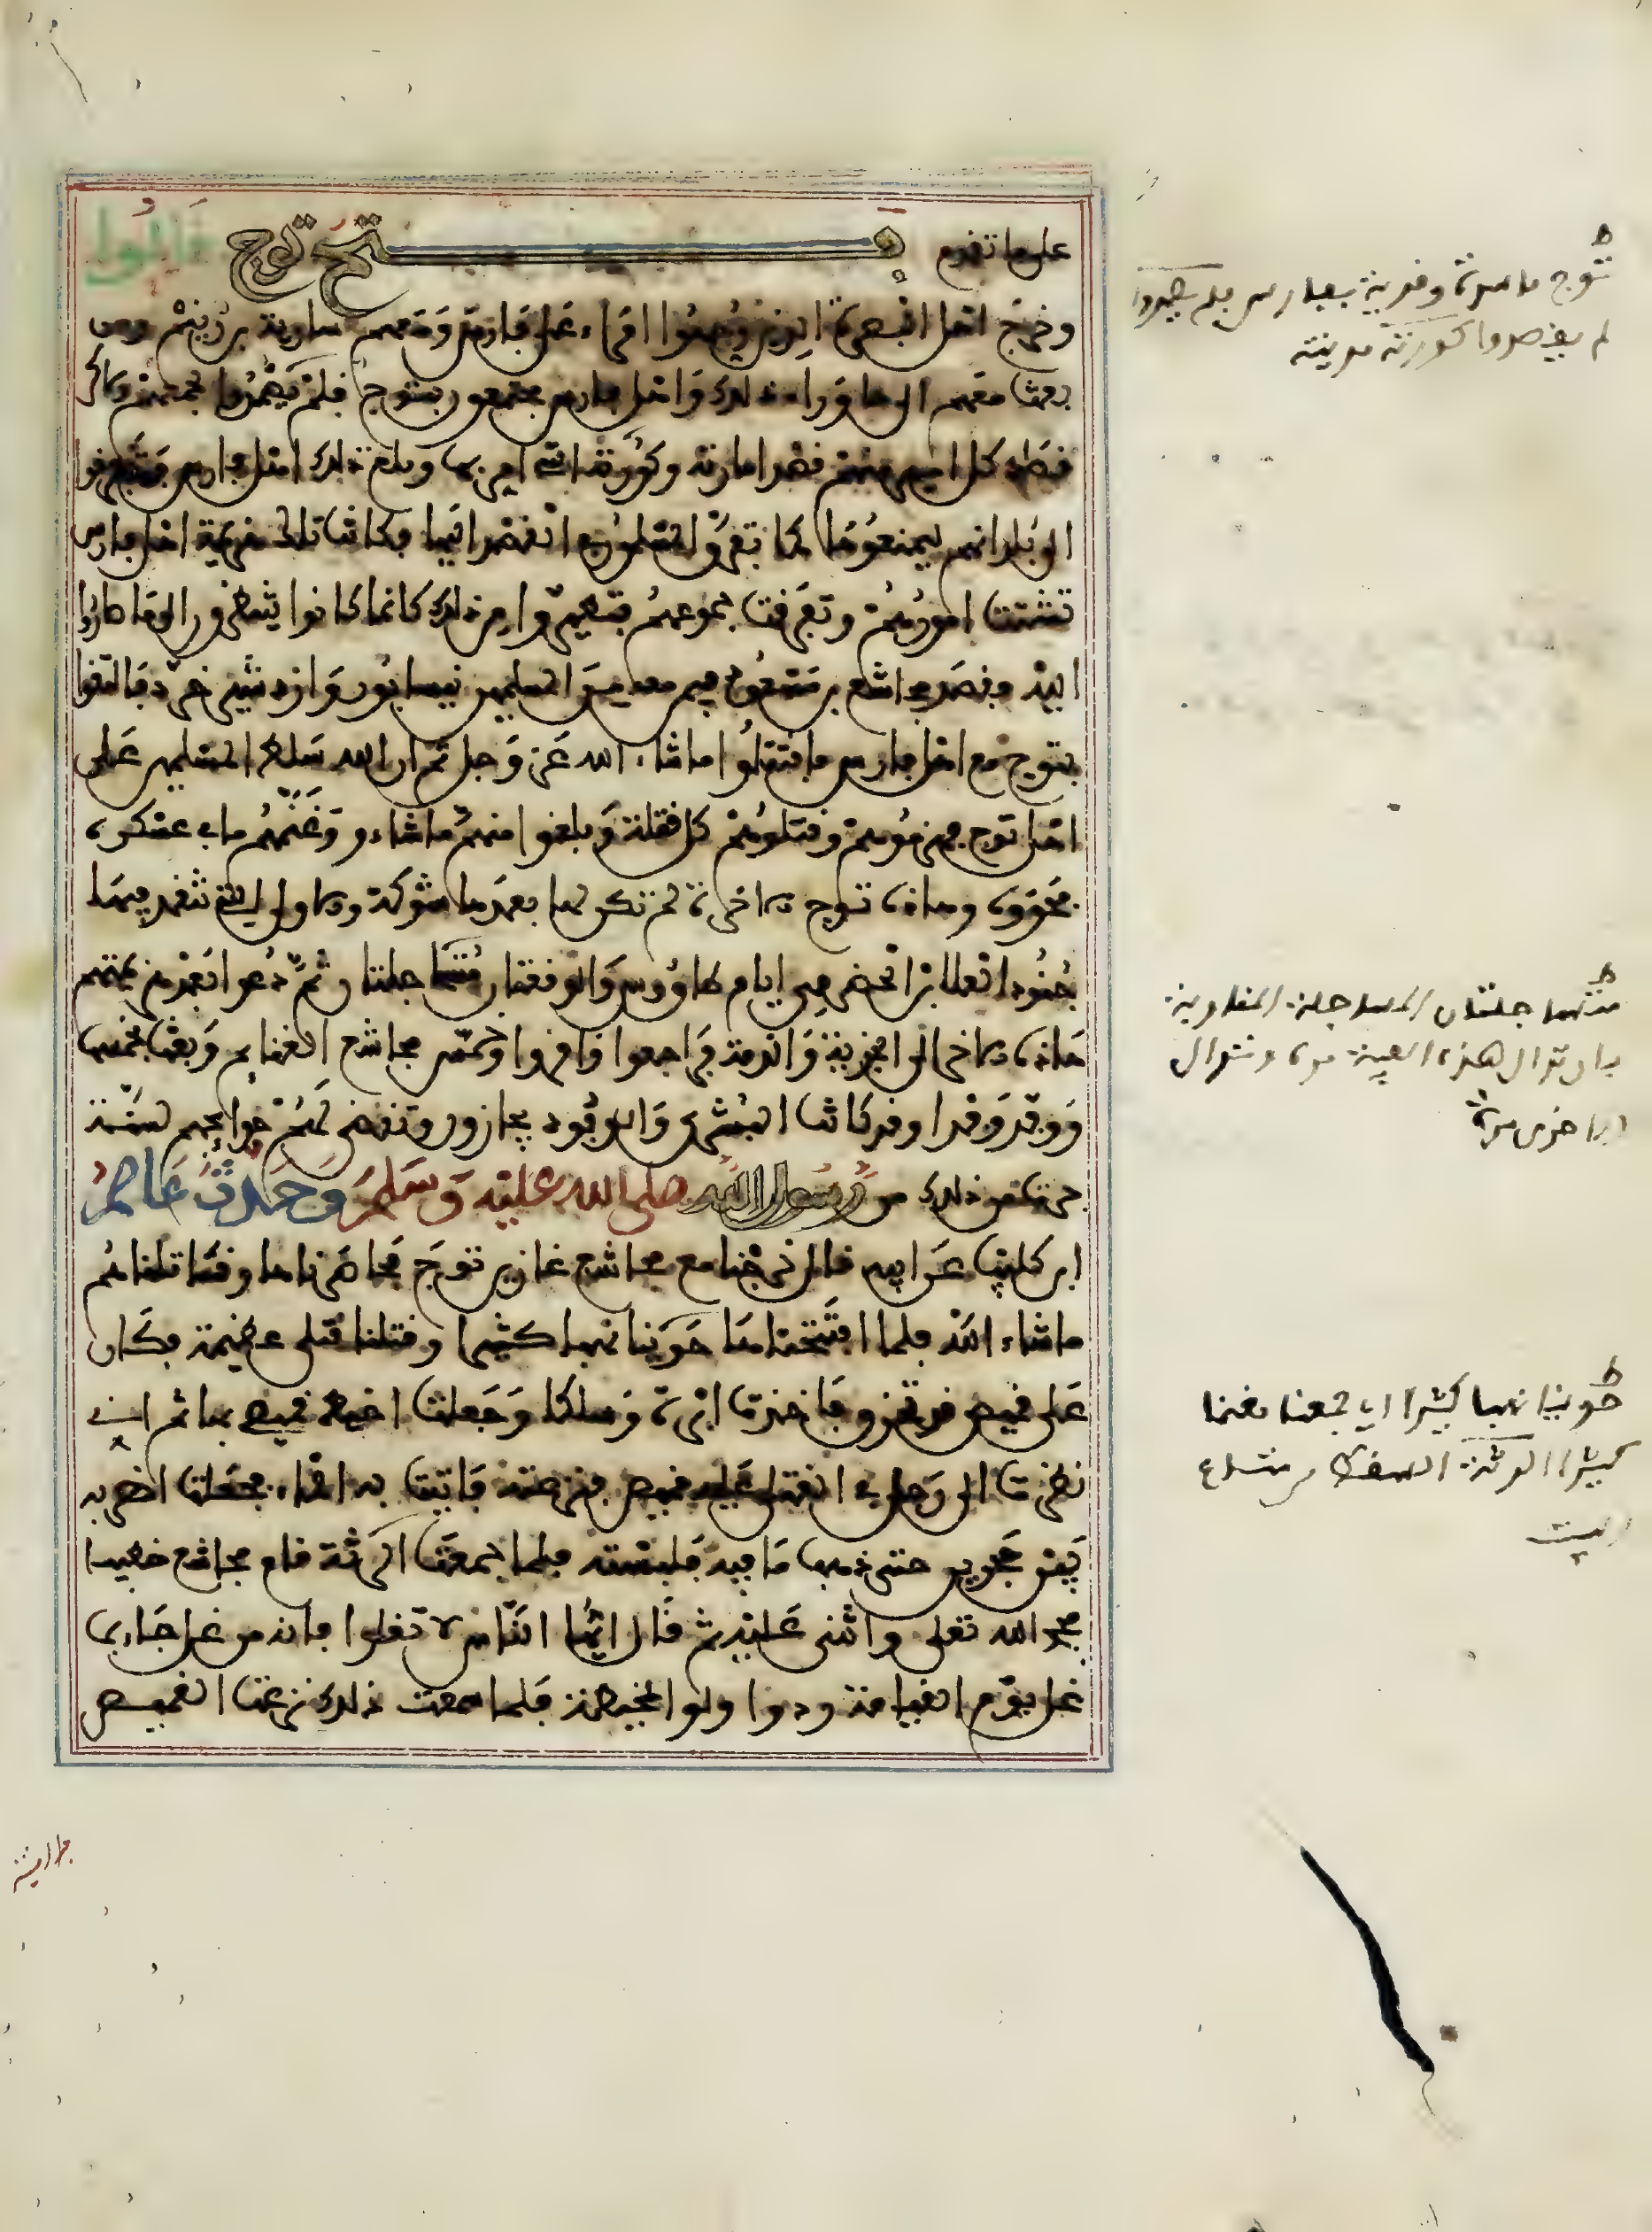 على ما تقدم فتح توج قالوا
وخرج اهل البصرة الذين وجهوا امراء على فارس ومعهم سارية بن زنيم ومن
بعث معهم الى ما وراء ذلك واهل فارس مجتمعون بتوج فلم يصمدوا بجمعهم ولاكن
قصد كل امير منهم قصد امارته وكورته التي امر بها وبلغ ذلك اهل فارس فتفرقوا
الى بلدانهم ليمنعوها كما تفرق المسلمون في القصد اليها فكانت تلك هزيمة اهل فارس
تشتت امورهم وتفرقت جموعهم فتطيروا من ذلك كانما كانوا ينظرون الى ما صاروا
اليه وقصد مجاشع بن مسعود فيمن معه من المسلمين نيسابور وازدشير خرة فالتقوا
بتوج مع اهل فارس فاقتتلوا ما شاء الله عز وجل ثم ان الله سلط المسلمين على
اهل توج فهزموهم وقتلوهم كل قتلة وبلغوا منهم ما شاءوا وغنمهم ما في عسكره
فحووه وهاذه توج الاخرة لم تكن لها بعدها شوكة والاولى التي تنقذ فيها
جنود العلا بن الحضرمي ايام طاووس والوقعتان متساجلتان ثم دعوا بعد هزيمتهم
هاذه الاخرة الى الجزية والذمة فراجعوا واقروا وخمس مجاشع الغنايم وبعث بخمسها
ووفد وفدا وقد كانت البشرى والوفود يجازون وتقضى لهم حوايجهم لسنة
جرت في ذلك من رسول الله صلى الله عليه وسلم وحدث عاصم
ابن كليب عن ابيه قال خرجنا مع مجاشع غازين توج فحاصرناها وقاتلناهم
ما شاء الله فلما افتتحناها حوينا نهبا كثيرا وقتلنا قتلى عظيمة فكان
على قميص قد تخرق فاخذت ابرة وسلكا وجعلت اخيط قميصي بها ثم اني
نظرت الى رجل في القتلى عليه قميص فنزعته فاتيت به الماء فجعلت اضربه
بين حجرين حتى ذهب ما فيه فلبسته فلما جمعت الرثة قام مجاشع خطيبا
فحمد الله تعلى واثنى عليه ثم قال ايها الناس لا تغلوا فانه من غل جاء بما
غل يوم القيامة ردوا ولو المخيط فلما سمعت ذلك نزعت القميص
ط
توج مدينة بفارس فلم يصمدوا
لم يقصدوا كورته مدينته
ط
متساجلتان المساجلة المفاوية
بان تدال هذه الفية مرة وتدال
الاخرى مرة
ط
حوينا نهبا كثيرا اي جمعنا مغنما
كثيرا الرثة السقط من متاع
البيت